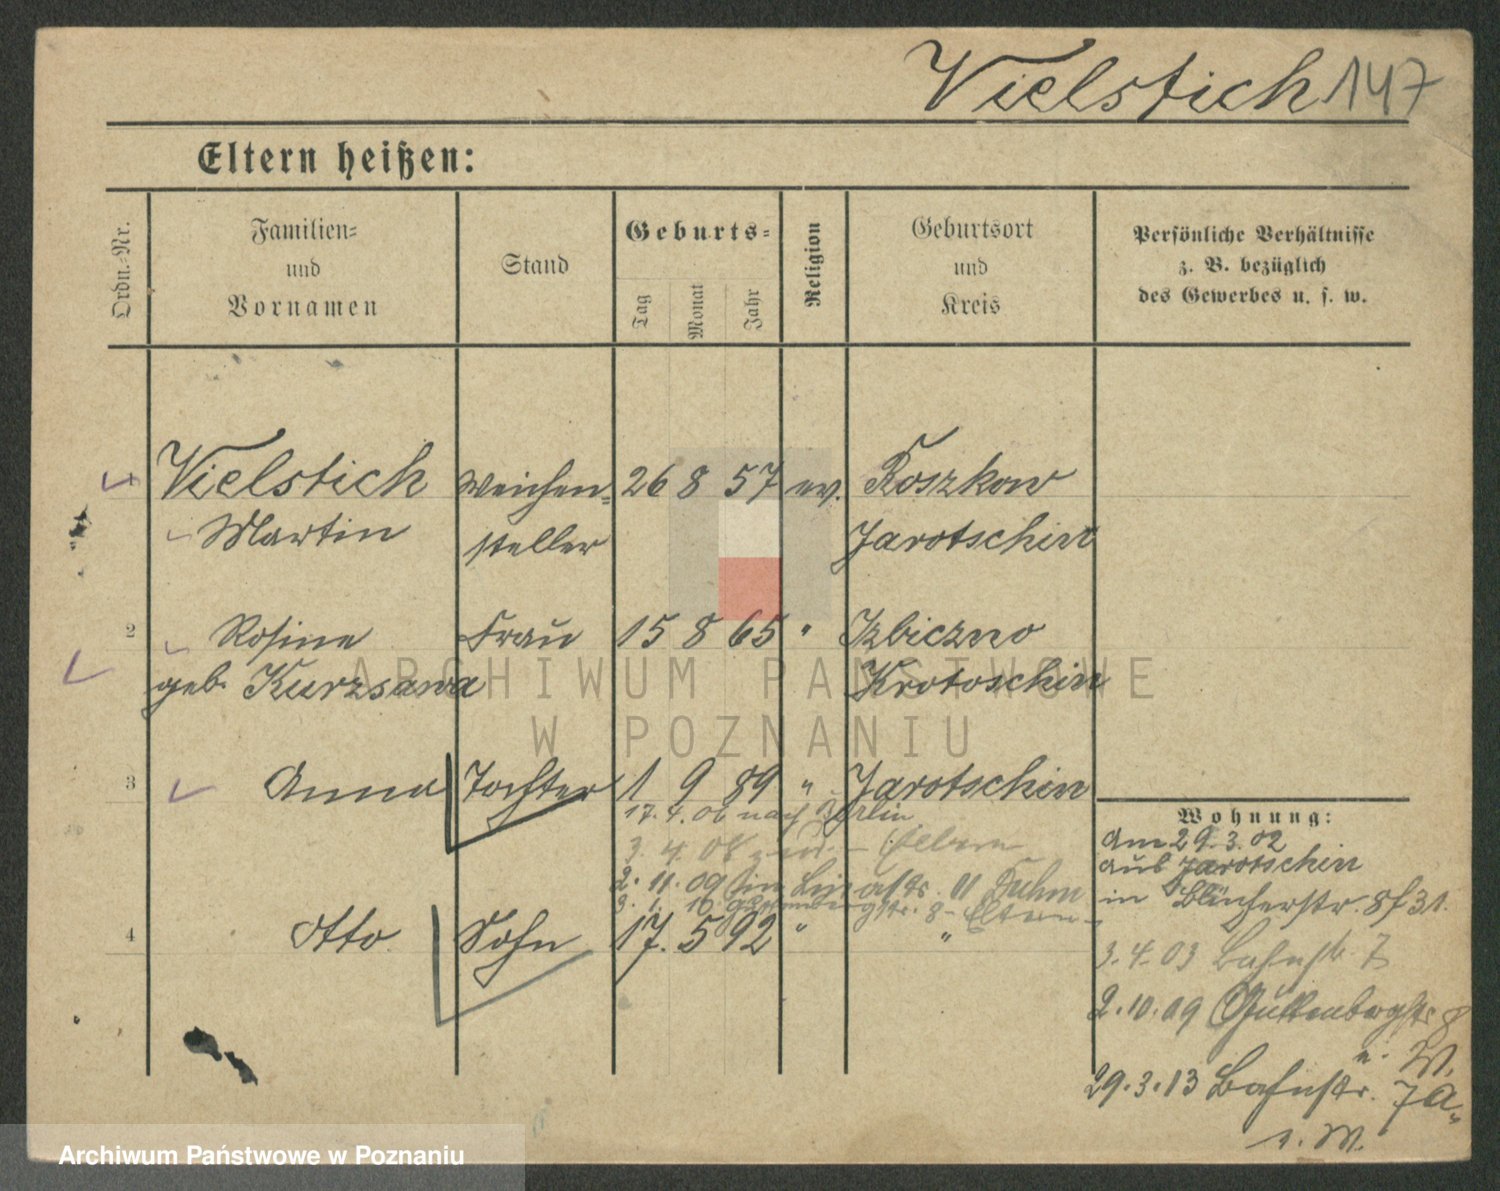 Vielstich 147
Eltern heißen:
Ordn.-Nr.
Familien-
und
Vornamen
Stand
Geburts-
Tag
Monat
Jahr
Religion
Geburtsort
und
Kreis
Persönliche Verhältnisse
z. B. bezüglich
des Gewerbes u. s. w.
Vielstich Weichen- 26 8 57 ev. Koszkow
Martin steller Jarotschin
2 Rosine Frau 15 8 65 " Izbiczno
geb. Kurzsawa Krotoschin
ARCHIWUM PAŃSTWOWE
W POZNANIU
3 Anna Tochter 1 9 89 " Jarotschin
17. 4. 06 nach Berlin
3. 4. 08
2. 11. 09
4 Otto Sohn 17. 5 92 " "
Wohnung:
Am 29. 3. 02
aus Jarotschin
in Blücherstr. 8 f 31.
3. 4. 03 Bahnstr. 7
2. 10. 09 Guttenbergstr 8
n. W.
29. 3. 13 Bahnstr. 7a
n. W.
Archiwum Państwowe w Poznaniu